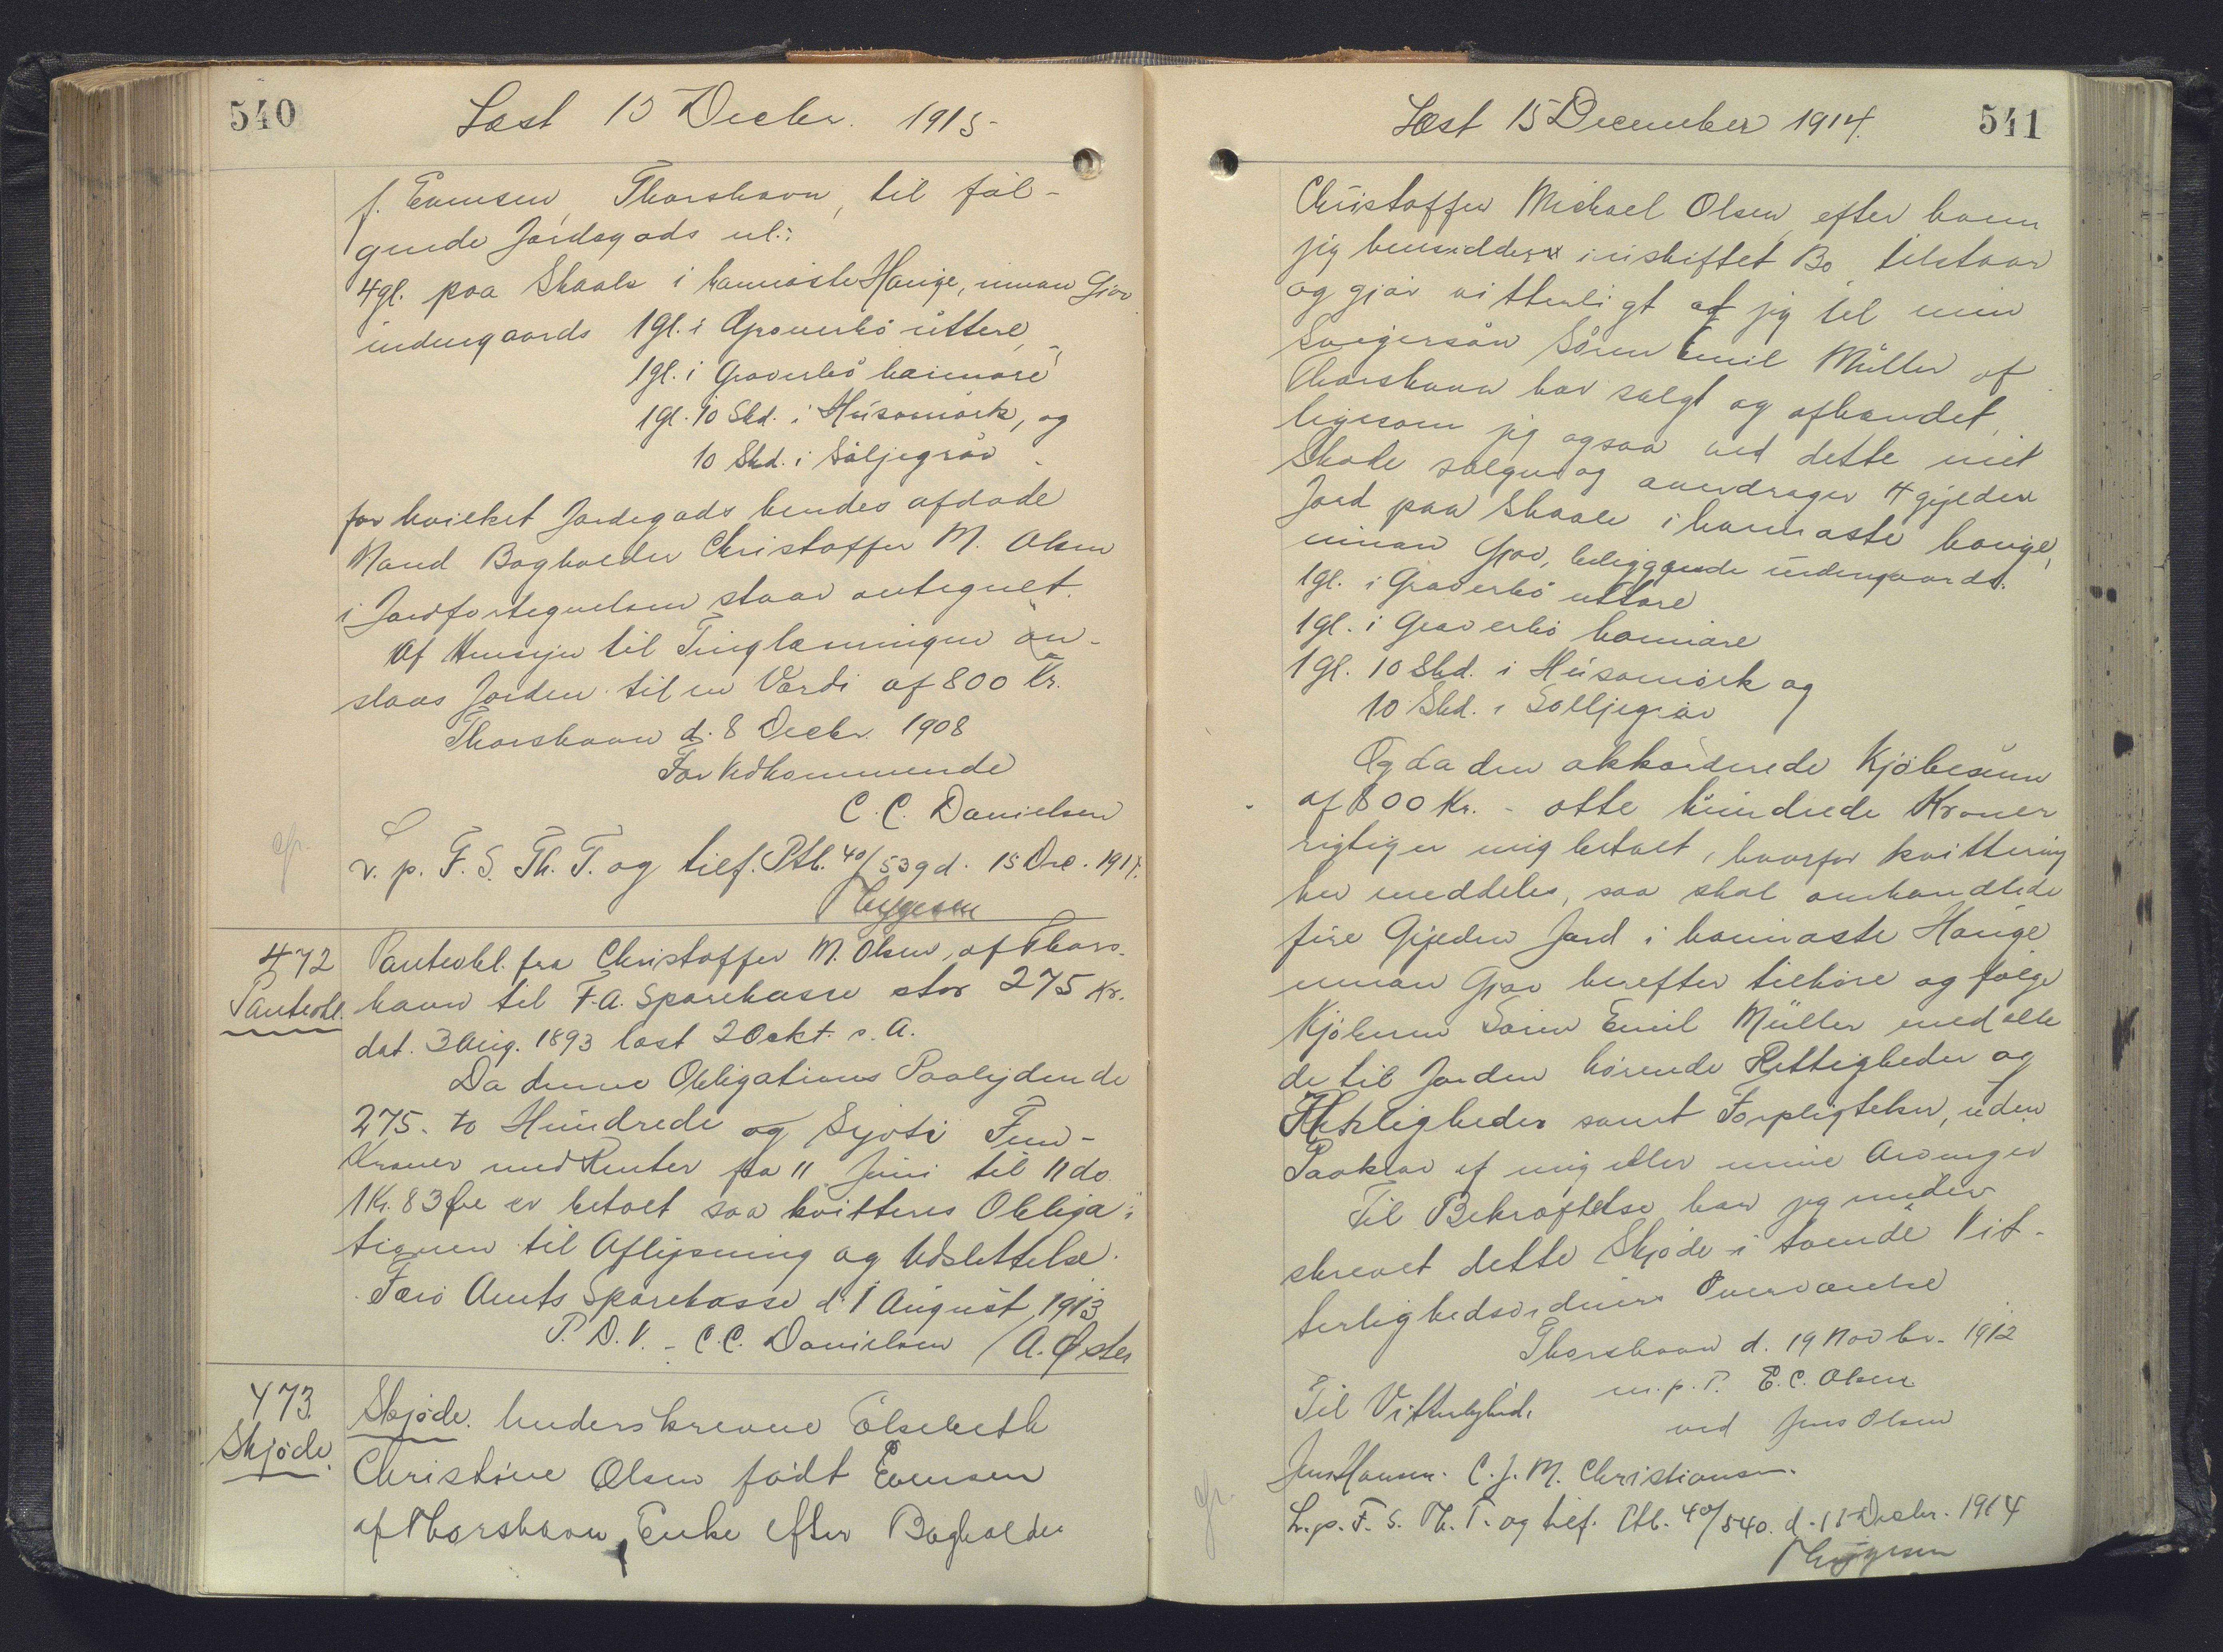 540
Læst 15 Decbr. 1915
f. Evensen, Thorshavn, til föl-
gende Jordegods nl.:
4 gl. paa Skaale i hannaste Hauge, innan Gjov
indengaards 1 gl. i Graverbö uttere,
1 gl. i Graverbö hannare
1 gl. 10 Skd. i Húsamörk, og
10 Skd. i Söljegröv
for hvilket Jordegods hendes afdöde
Mand Bogholder Christoffer M. Olsen
i Jordfortegnelsen staar antegnet.
Af Hensyn til Tinglæsningen an-
slaas Jorden til en Værdi af 800 Kr.
Thorshavn d. 8 Decbr. 1908
For Vedkommende
C. C. Danielsen
cfr.
L. p. F. S. Th. T. og tilf. Ptb. 40/539 d. 15 Dec. 1914.
Thygesen
472
Panteobl.
Panteobl. fra Christoffer M. Olsen, af Thors-
havn til F. A. Sparekasse stor 275 Kr.
dat. 3 Aug. 1893 læst 2 Ockt. s. A.
Da denne Obligations Paalydende
275. to Hundrede og Syvti Fem-
Kroner med Renter fra 11 Juni til 11 do.
1 Kr. 83 Øre er betalt saa kvitteres Obliga-
tionen til Aflysning og Udslettelse.
Færö Amts Sparekasse d. 1 August 1913
P. D. V. - C. C. Danielsen / A. Øster
473
Skjöde.
Skjöde. Underskrevne Elsebeth
Christine Olsen födt Evensen
af Thorshavn, Enke efter Bogholder
541
Læst 15 December 1914.
Christoffer Michael Olsen, efter ham
jig hensidder i uskiftet Bo tilstaar
og gjör vitterligt at jig til min
Svigersön Sören Emil Müller af
Thorshavn har solgt og afhændet,
ligesom jig ogsaa ved dette mit
Skøde sælger og overdrager 4 gylden
Jord paa Skaale i hannaste hauge,
innan Gjov, beliggende indengaards.
1 gl. i Graverbö uttare
1 gl. i Graverbö hannare
1 gl. 10 Skd. i Húsamörk og
10 Skd. i Sölljegröv
Og da den akkorderede Kjöbesum
af 800 Kr. - otte hundrede Kroner
rigtig er mig betalt, hvorfor kvittering
her meddeles, saa skal omhandlede
fire Gylden Jord i hannaste Hauge
innan Gjov herefter tilhöre og fölge
Kjöberen Sören Emil Müller med alle
de til Jorden hörende Rettigheder og
Herligheder samt Forpligtelser, uden
Paakrav af mig eller mine Arvinger
Til Bekræftelse har jeg under-
skrevet dette Skjöde i tvende Vit-
terlighedsvidners Overværelse
Thorshavn d. 19 Novbr. 1912
m. p. P. E. C. Olsen
ved Jens Olsen
Til Vitterlighed.
Jens Hansen. C. J. M. Christiansen.
cfr.
L. p. F. S. Th. T. og tilf. Ptb. 40/540. d. 15 Decbr. 1914
Thygesen